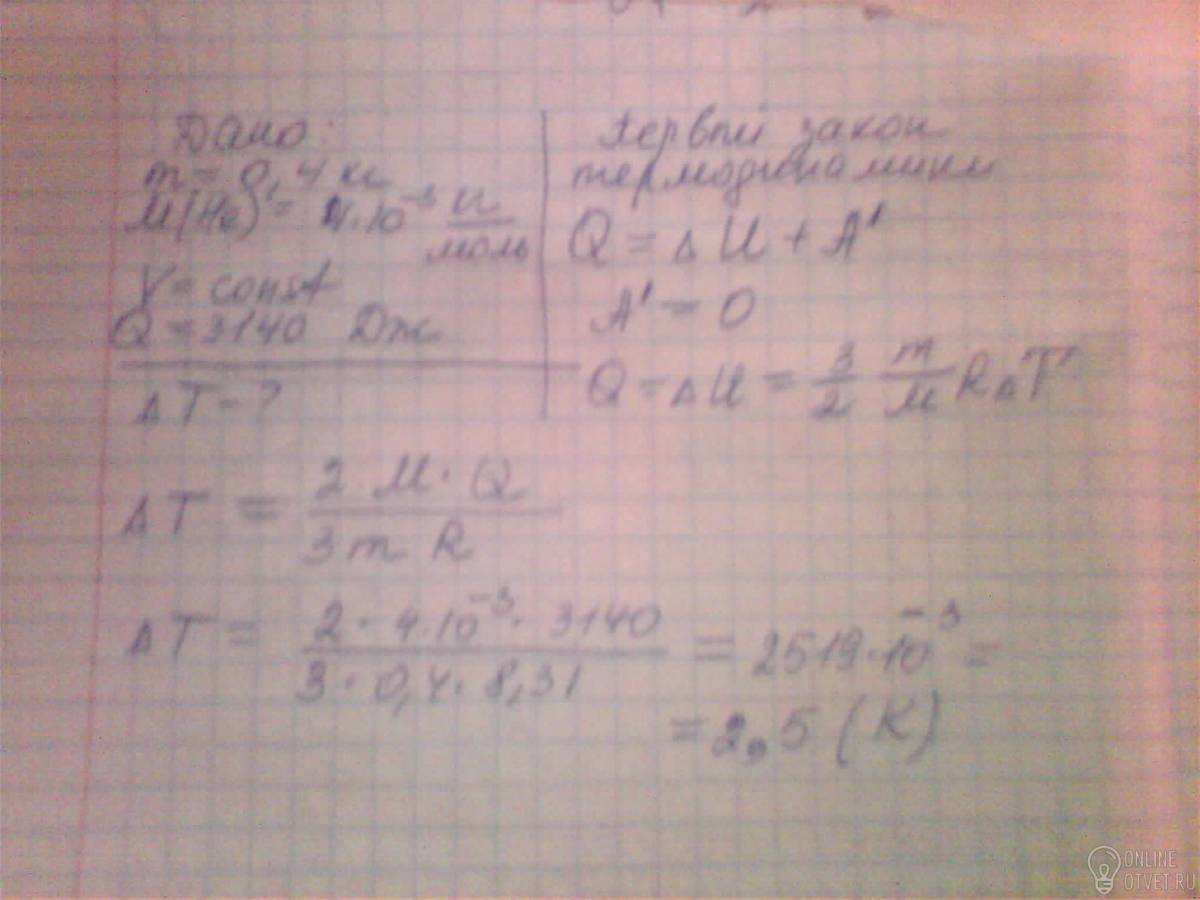 Дано:
m = 0,4 кг
M(He) = 4·10⁻³ кг/моль
V = const
Q = 3140 Дж
ΔT - ?
Первый закон
термодинамики
Q = ΔU + A'
A' = 0
Q = ΔU = 3/2 m/M RΔT
ΔT = 2 M · Q / 3 m R
ΔT = 2 · 4·10⁻³ · 3140 / 3 · 0,4 · 8,31 = 2519·10⁻³ =
= 2,5 (K)
ONLINE
OTVET.RU